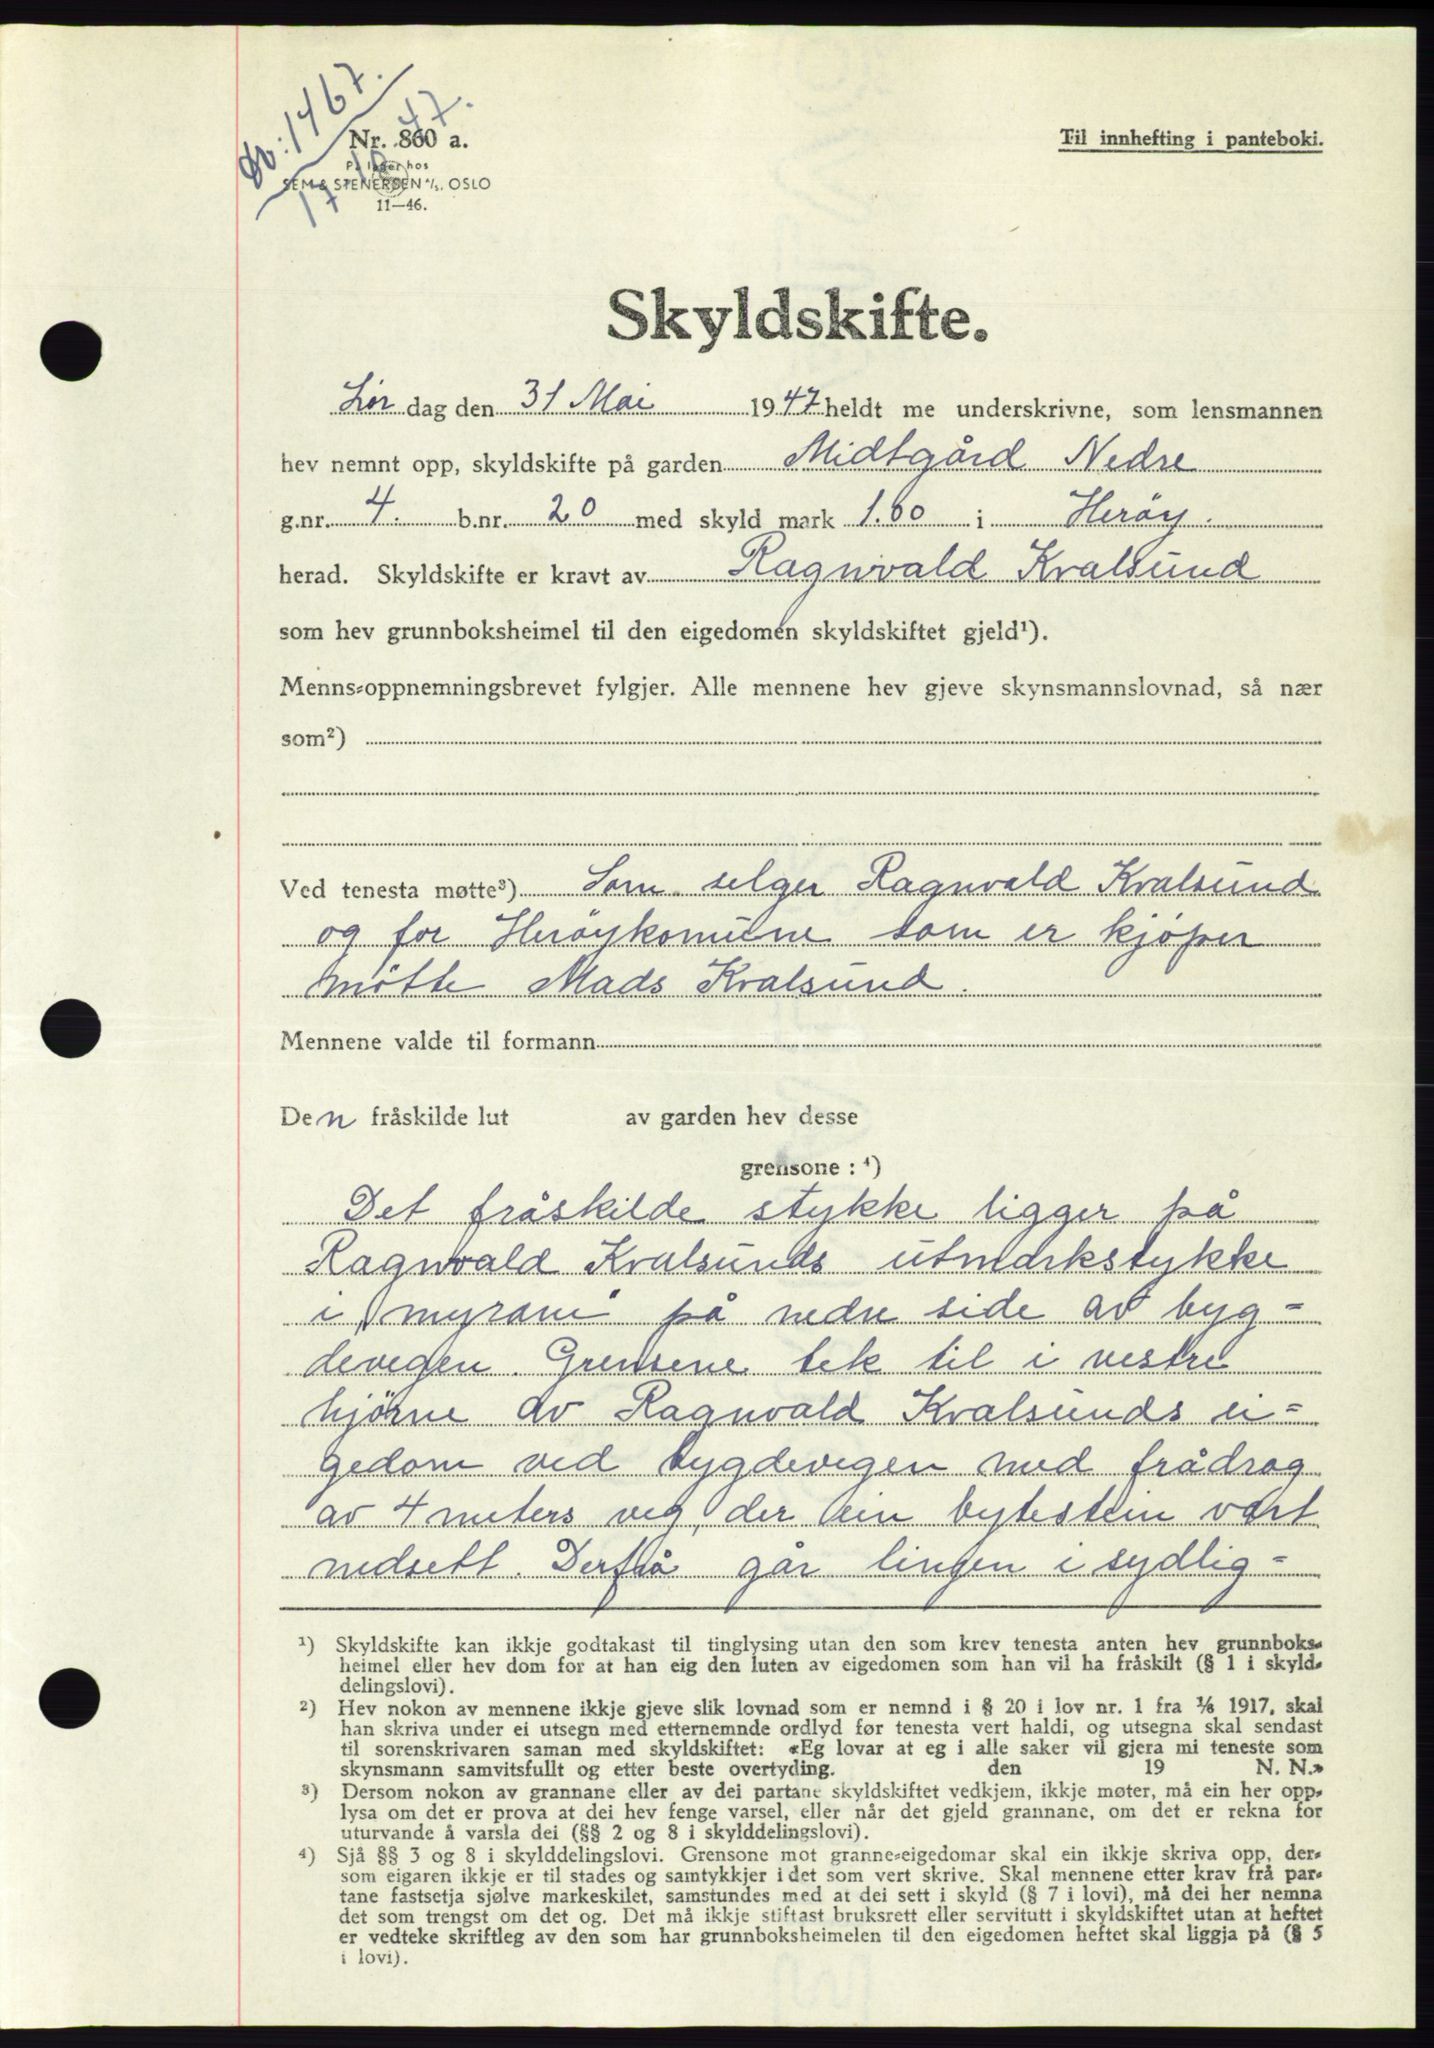 Db: 1467.
17 - 10 47.
Nr. 860 a.
På lager hos
SEM & STENERSEN A/S, OSLO
11—46.
Til innhefting i panteboki.
Skyldskifte.
Lør dag den 31 Mai 1947 heldt me underskrivne, som lensmannen
hev nemnt opp, skyldskifte på garden Midtgård Nedre
g.nr. 4. b.nr. 20 med skyld mark 1.00 i Herøy.
herad. Skyldskifte er kravt av Ragnvald Kvalsund
som hev grunnboksheimel til den eigedomen skyldskiftet gjeld¹).
Menns-oppnemningsbrevet fylgjer. Alle mennene hev gjeve skynsmannslovnad, så nær
som²)
Ved tenesta møtte³) Som selger Ragnvald Kvalsund
og for Herøykomune som er kjøper
møtte Mads Kvalsund.
Mennene valde til formann
Den fråskilde lut av garden hev desse
grensone : ⁴)
Det fråskilde stykke ligger på
Ragnvald Kvalsunds utmarkstykke
i "myrane" på nedre side av byg=
devegen. Grensene tek til i vestre
hjørne av Ragnvald Kvalsunds ei=
gedom ved bygdevegen med frådrag
av 4 meters veg, der ein bytestein vart
nedsett. Derfrå går lingen i sydlig=
¹) Skyldskifte kan ikkje godtakast til tinglysing utan den som krev tenesta anten hev grunnboks-
heimel eller hev dom for at han eig den luten av eigedomen som han vil ha fråskilt (§ 1 i skyld-
delingslovi).
²) Hev nokon av mennene ikkje gjeve slik lovnad som er nemnd i § 20 i lov nr. 1 fra ⅛ 1917, skal
han skriva under ei utsegn med etternemnde ordlyd før tenesta vert haldi, og utsegna skal sendast
til sorenskrivaren saman med skyldskiftet: «Eg lovar at eg i alle saker vil gjera mi teneste som
skynsmann samvitsfullt og etter beste overtyding. den 19 N. N.»
³) Dersom nokon av grannane eller av dei partane skyldskiftet vedkjem, ikkje møter, må ein her opp-
lysa om det er prova at dei hev fenge varsel, eller når det gjeld grannane, om det er rekna for
uturvande å varsla dei (§§ 2 og 8 i skylddelingslovi).
⁴) Sjå §§ 3 og 8 i skylddelingslovi. Grensone mot granne-eigedomar skal ein ikkje skriva opp, der-
som eigaren ikkje er til stades og samtykkjer i det som vert skrive. Skal mennene etter krav frå par-
tane fastsetja sjølve markeskilet, samstundes med at dei sett i skyld (§ 7 i lovi), må dei her nemna
det som trengst om det og. Det må ikkje stiftast bruksrett eller servitutt i skyldskiftet utan at heftet
er vedteke skriftleg av den som har grunnboksheimelen til den eigedomen heftet skal liggja på (§ 5
i lovi).